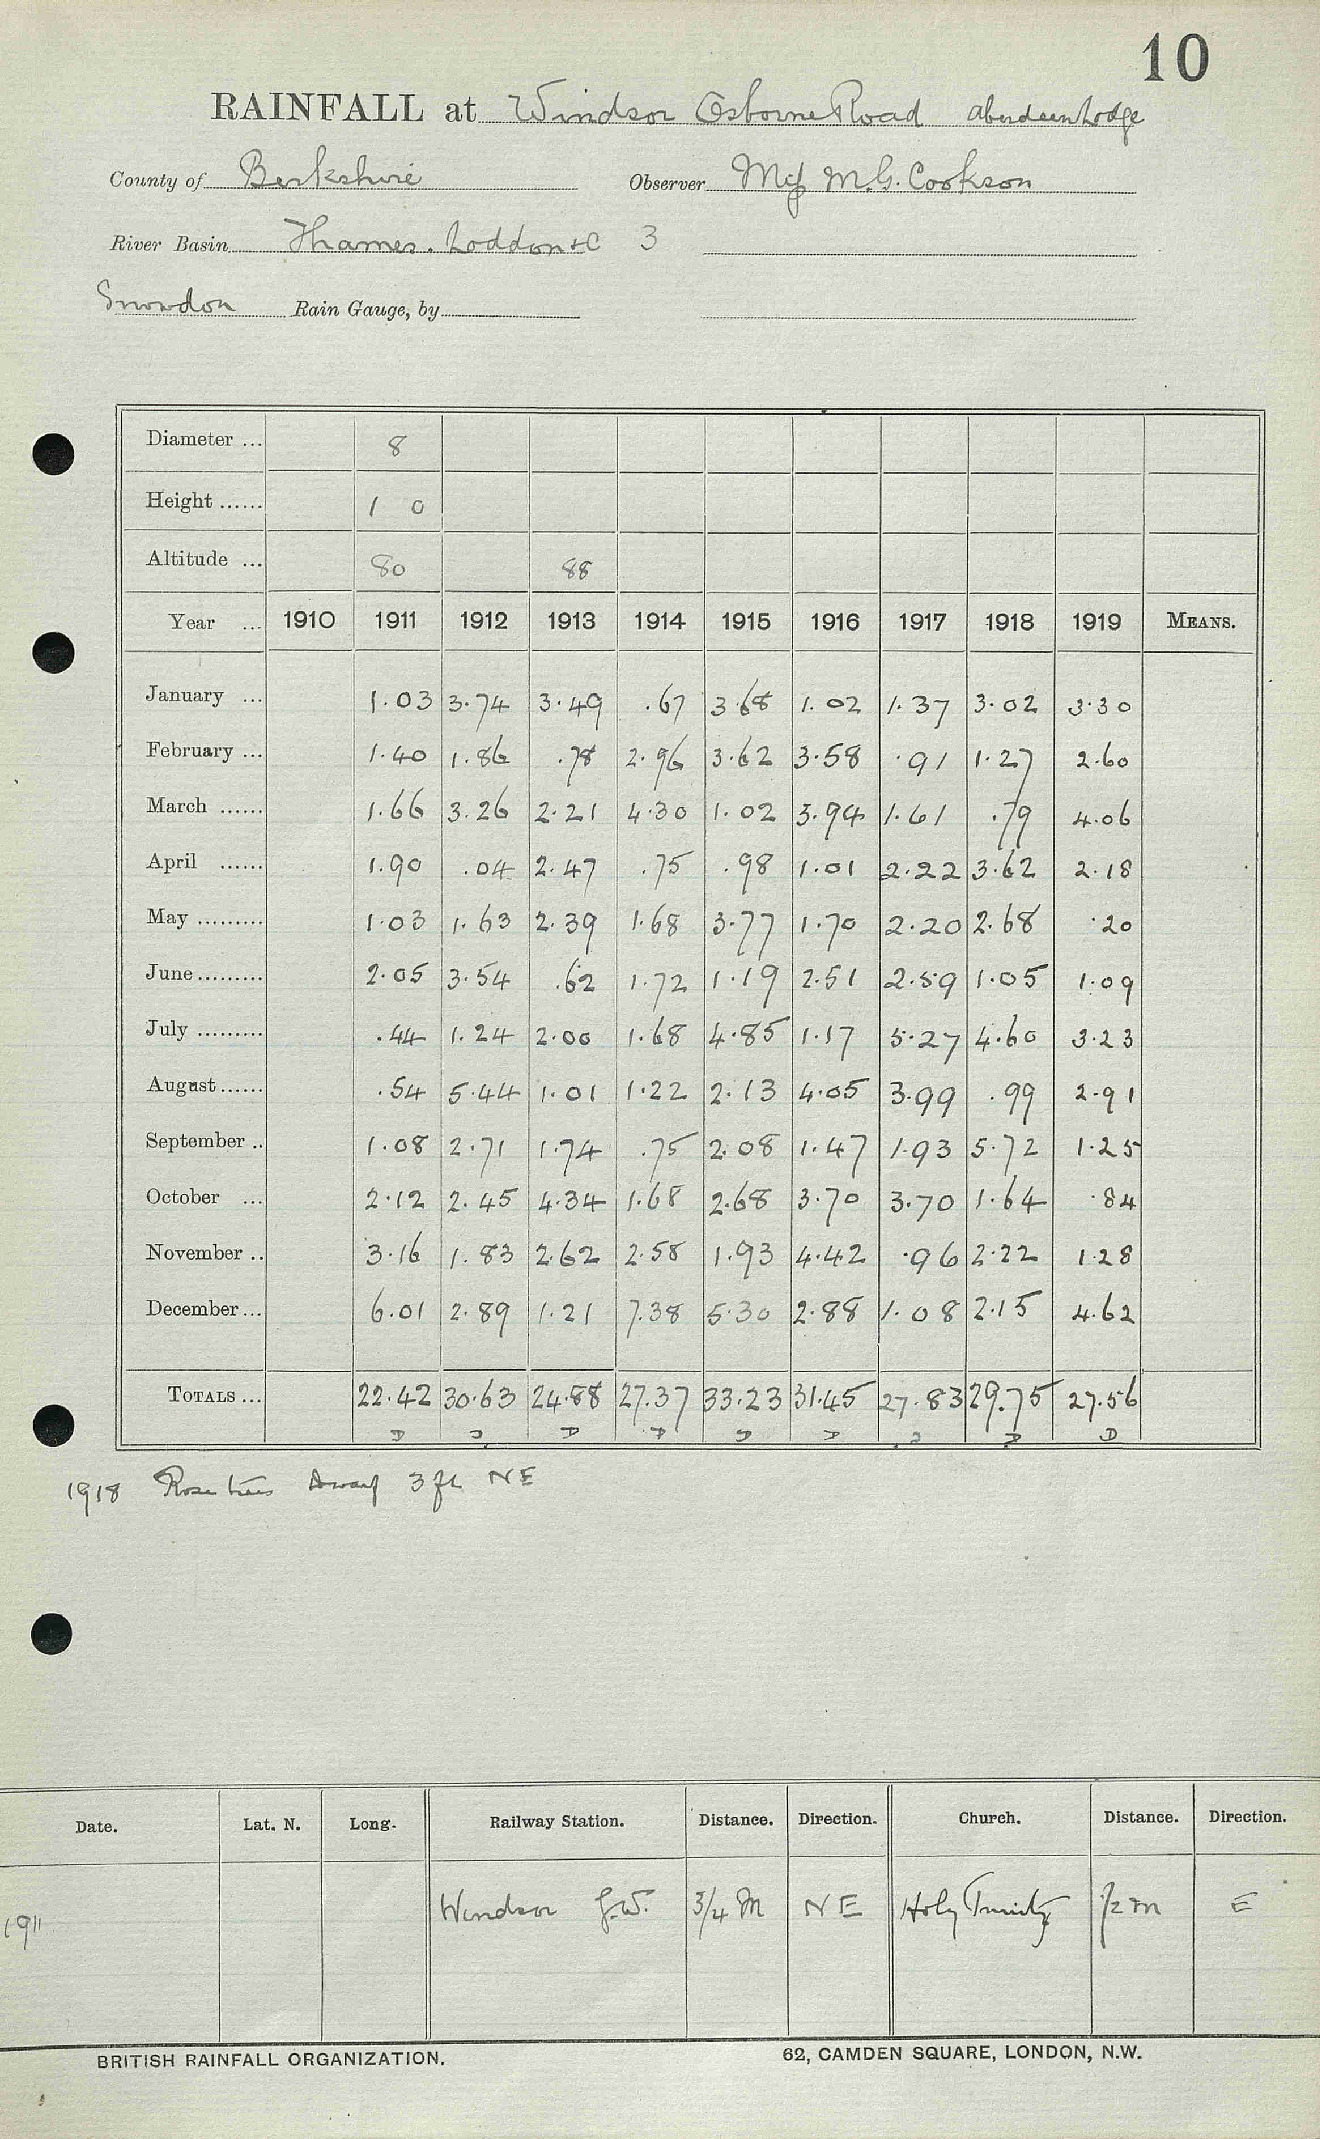 10
RAINFALL at Windsor Osborne Road Aberdeen Lodge
County of Berkshire Observer M.G. Cookson
River Basin Thames. Loddon &c 3
Snowdon Rain Gauge, by
Diameter ... 8
Height ...... 1 0
Altitude ... 80 88
Year ... 1910 1911 1912 1913 1914 1915 1916 1917 1918 1919 MEANS.
January ... 1.03 3.74 3.49 .67 3.68 1.02 1.37 3.02 3.30
February ... 1.40 1.86 .78 2.96 3.62 3.58 .91 1.27 2.60
March ...... 1.66 3.26 2.21 4.30 1.02 3.94 1.61 .79 4.06
April ...... 1.90 .04 2.47 .75 .98 1.01 2.22 3.62 2.18
May ......... 1.03 1.63 2.39 1.68 3.77 1.70 2.20 2.68 .20
June ......... 2.05 3.54 .62 1.72 1.19 2.51 2.59 1.05 1.09
July ......... .44 1.24 2.00 1.68 4.85 1.17 5.27 4.60 3.23
August ...... .54 5.44 1.01 1.22 2.13 4.05 3.99 .99 2.91
September .. 1.08 2.71 1.74 .75 2.08 1.47 1.93 5.72 1.25
October ... 2.12 2.45 4.34 1.68 2.68 3.70 3.70 1.64 .84
November .. 3.16 1.83 2.62 2.58 1.93 4.42 .96 2.22 1.28
December ... 6.01 2.89 1.21 7.38 5.30 2.88 1.08 2.15 4.62
TOTALS ... 22.42 30.63 24.88 27.37 33.23 31.45 27.83 29.75 27.56
D D D D D D D D D
1918 Rose trees Dwarf 3 ft NE
Date. Lat. N. Long. Railway Station. Distance. Direction. Church. Distance. Direction.
1911 Windsor G.W. 3/4 M NE Holy Trinity 1/2 m E
BRITISH RAINFALL ORGANIZATION. 62, CAMDEN SQUARE, LONDON, N.W.